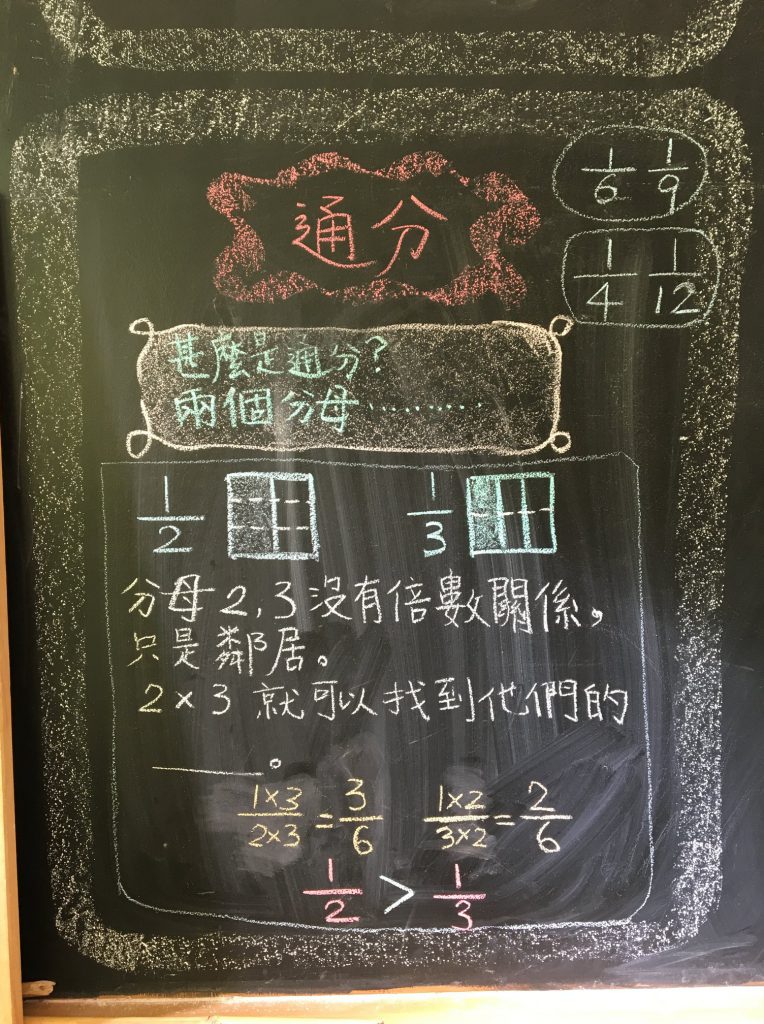 通分
1/6 1/9
1/4 1/12
甚麼是通分?
兩個分母..........
1/2 1/3
分母2,3沒有倍數關係,
只是鄰居。
2×3 就可以找到他們的
____。
1×3/2×3=3/6 1×2/3×2=2/6
1/2 > 1/3